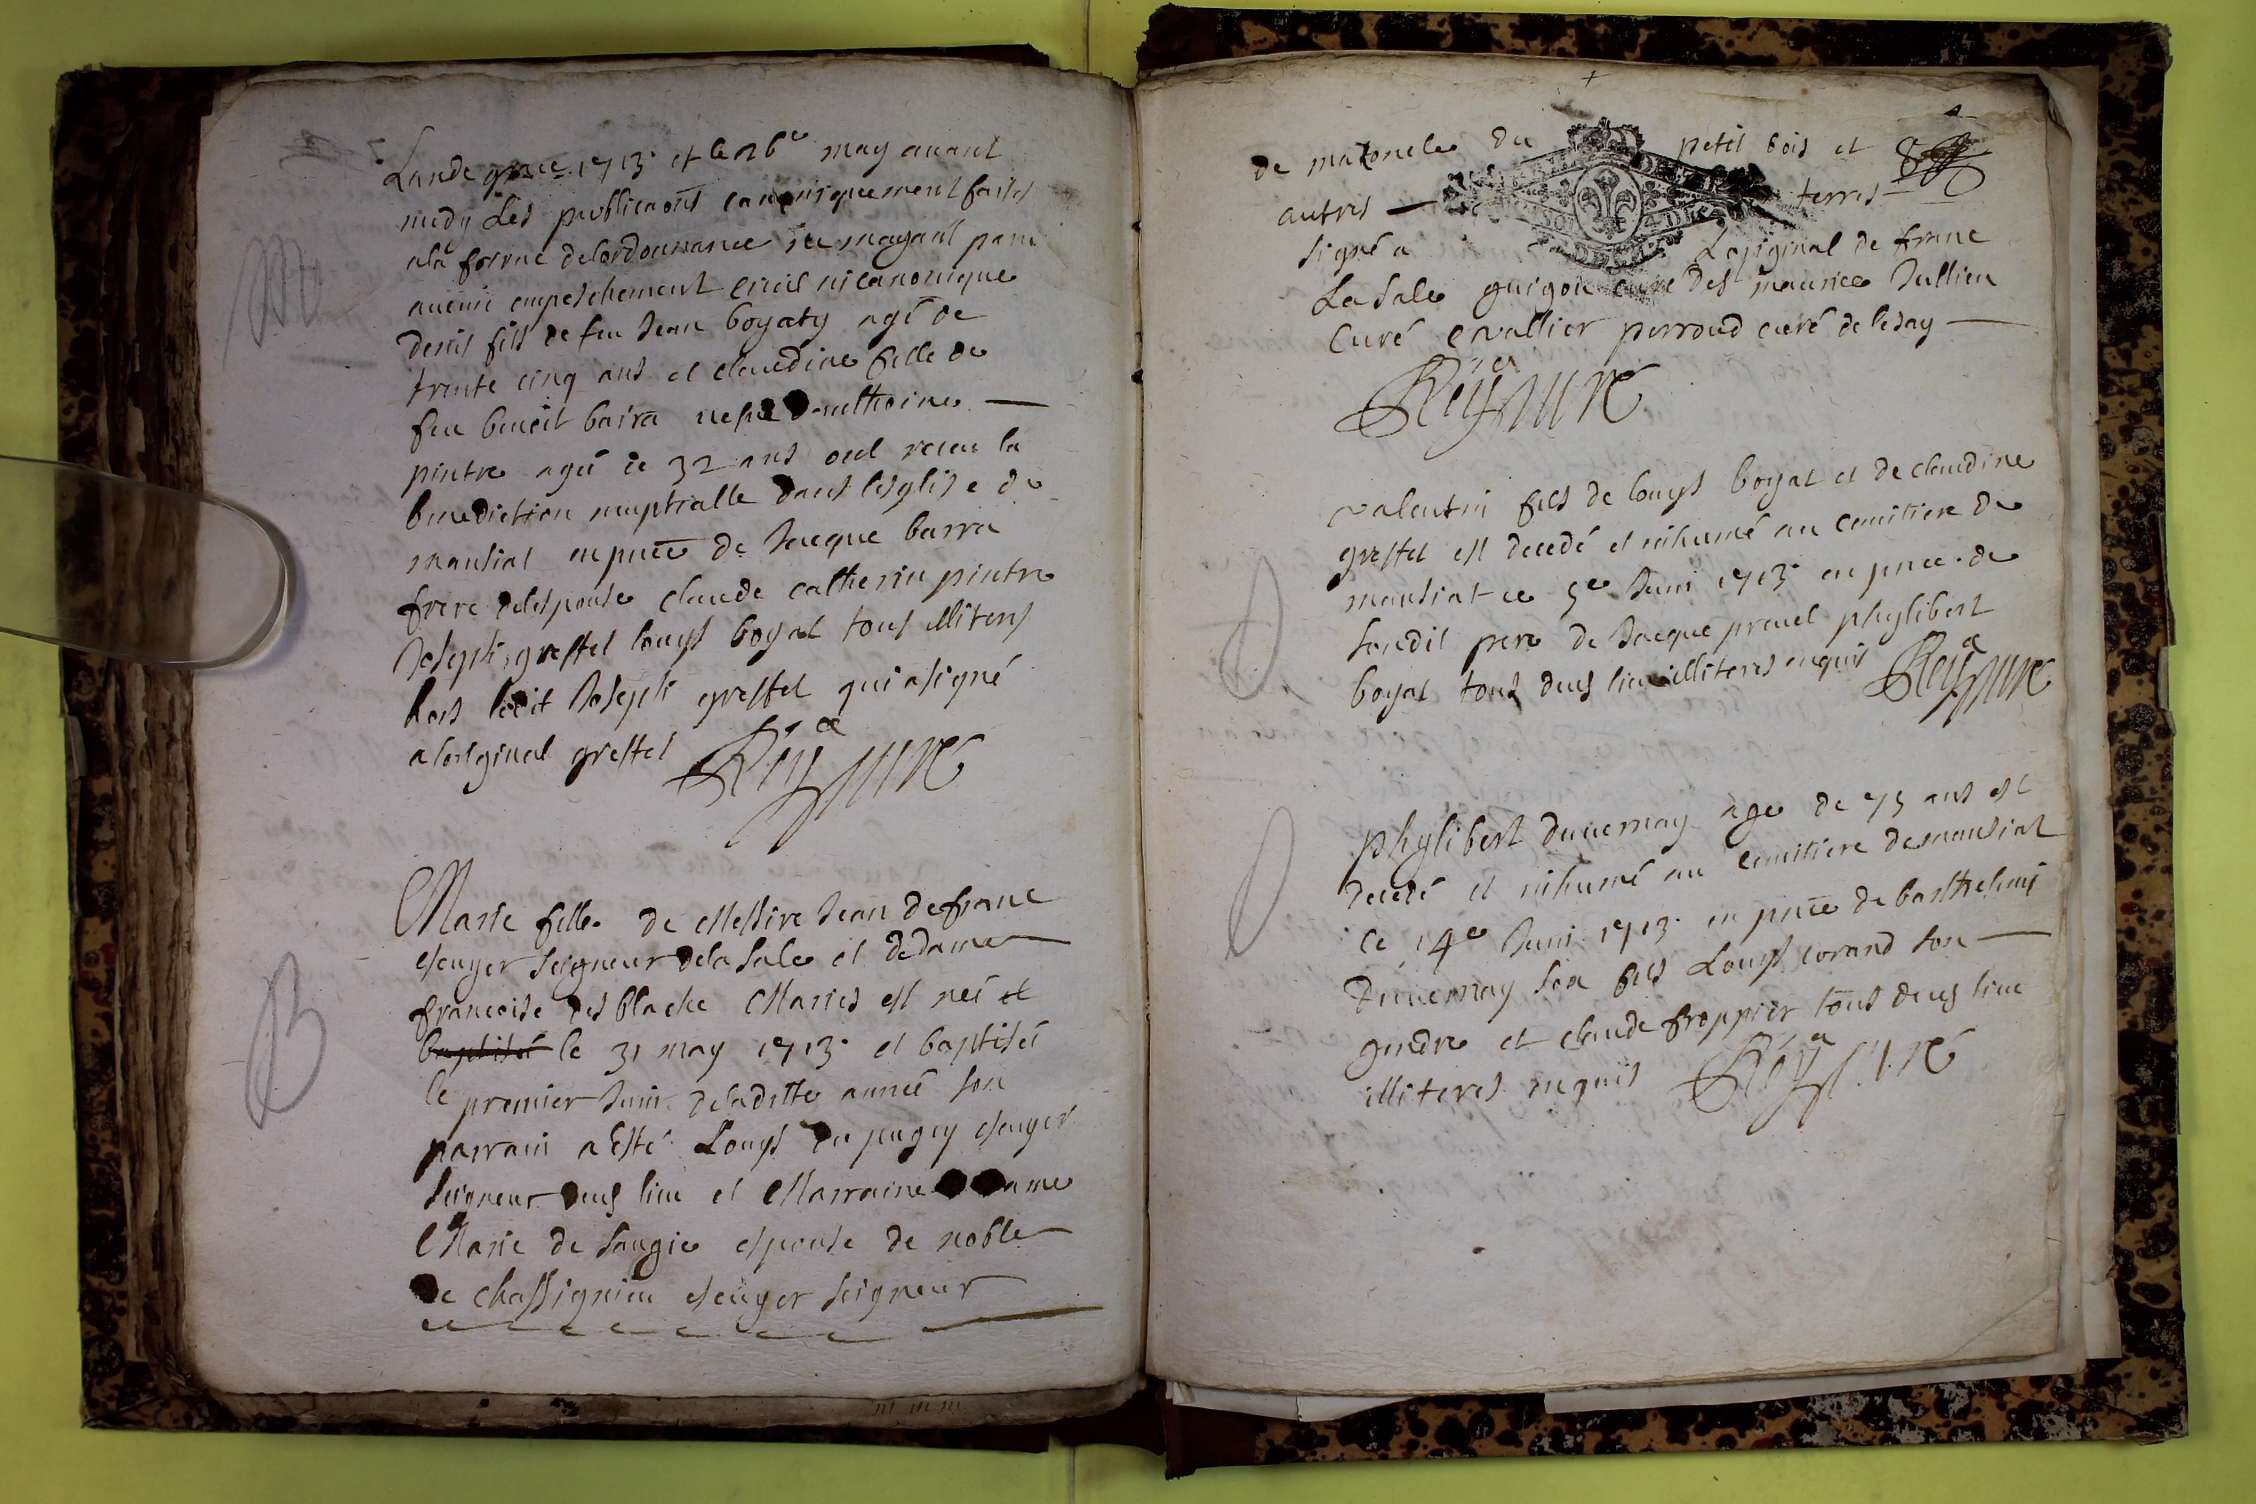 Lande grace 1713 et le 26e may auant
midy Les publicaõns canoniquement faites
a la forme de lordonnance ne s'y ayant paru
aucun empeschement civil ni canonique
denis fils de feu Jean boyaty agé de
trente cinq ans et claudine fille de
feu benoit barra
pintre agée de 32 ans ont receu la
benediction nuptialle dans lesglise de
mansiat en pñce de Jacque barra
frere delespouse claude catherin pintre
Joseph greffet louys boyat tous illiteres
hors ledit Joseph greffet qui a signé
a loriginal greffet Rey cure
Marie fille de Messire Jean de franc
escuyer seigneur de la sale et de dame
francoise des blache Maries est neé et
baptisée le 31 may 1713 et baptiseé
le premier Juin de la ditte anneé son
parrain a esté Louys du pugey escuyer
seigneur dud lieu et Marraine dame
Marie de sougie espouse de noble
de chassignieu escuyer seigneur
de maconele du petit bois et
autres terres
signé a Loriginal de franc
La sale guigou cure des maurice Jullien
curé cvallier perroud curé de lesay
Rey cure
valentin fils de louys boyat et de claudine
greffet est decedé et inhumé au cemitiere de
mansiat ce 5e Juin 1713 en pnce de
sondit pere de Jacque prevel phylibert
boyat tous dud lieu illiteres enquis Rey cure
phylibert duvernay age de 75 ans est
decedé et inhumé au cemitiere de mansiat
ce 14e Juin 1713 en pnce de barthelemi
Duvernay son fils Louys corand son
gendre et claude froppier tous dud lieu
illiteres enquis Rey cure
M
B